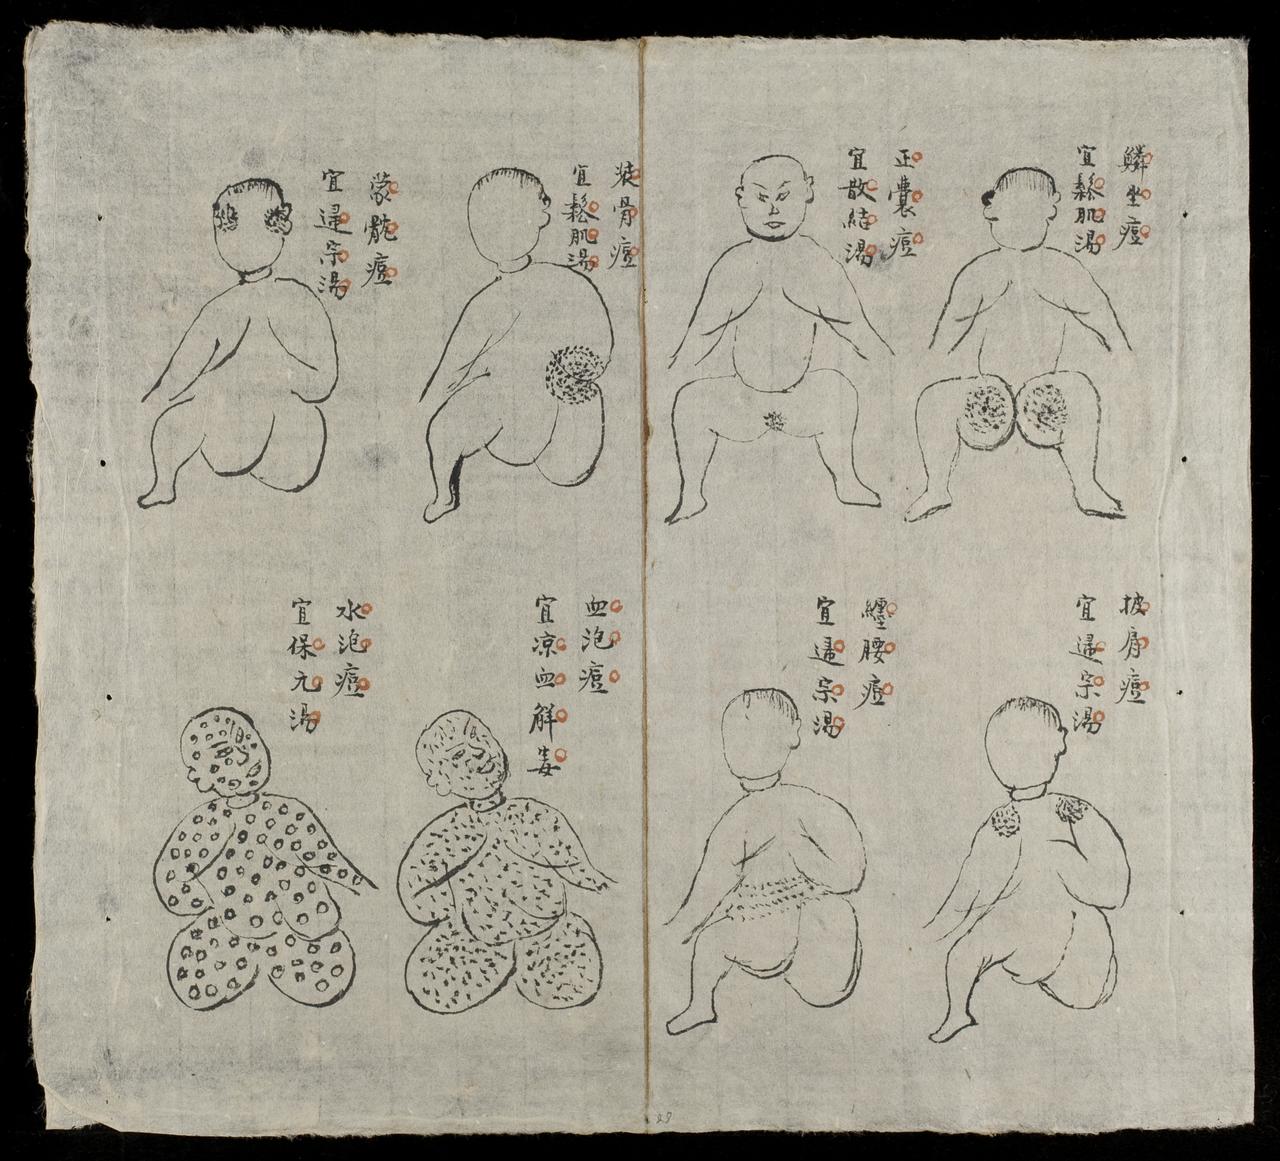 鱗坐痘
宜鬆肌湯
正囊痘
宜散結湯
披肩痘
宜歸宗湯
纏腰痘
宜歸宗湯
骨痘
宜鬆肌湯
蒙痘
宜歸宗湯
血泡痘
宜凉血解毒
水泡痘
宜保元湯